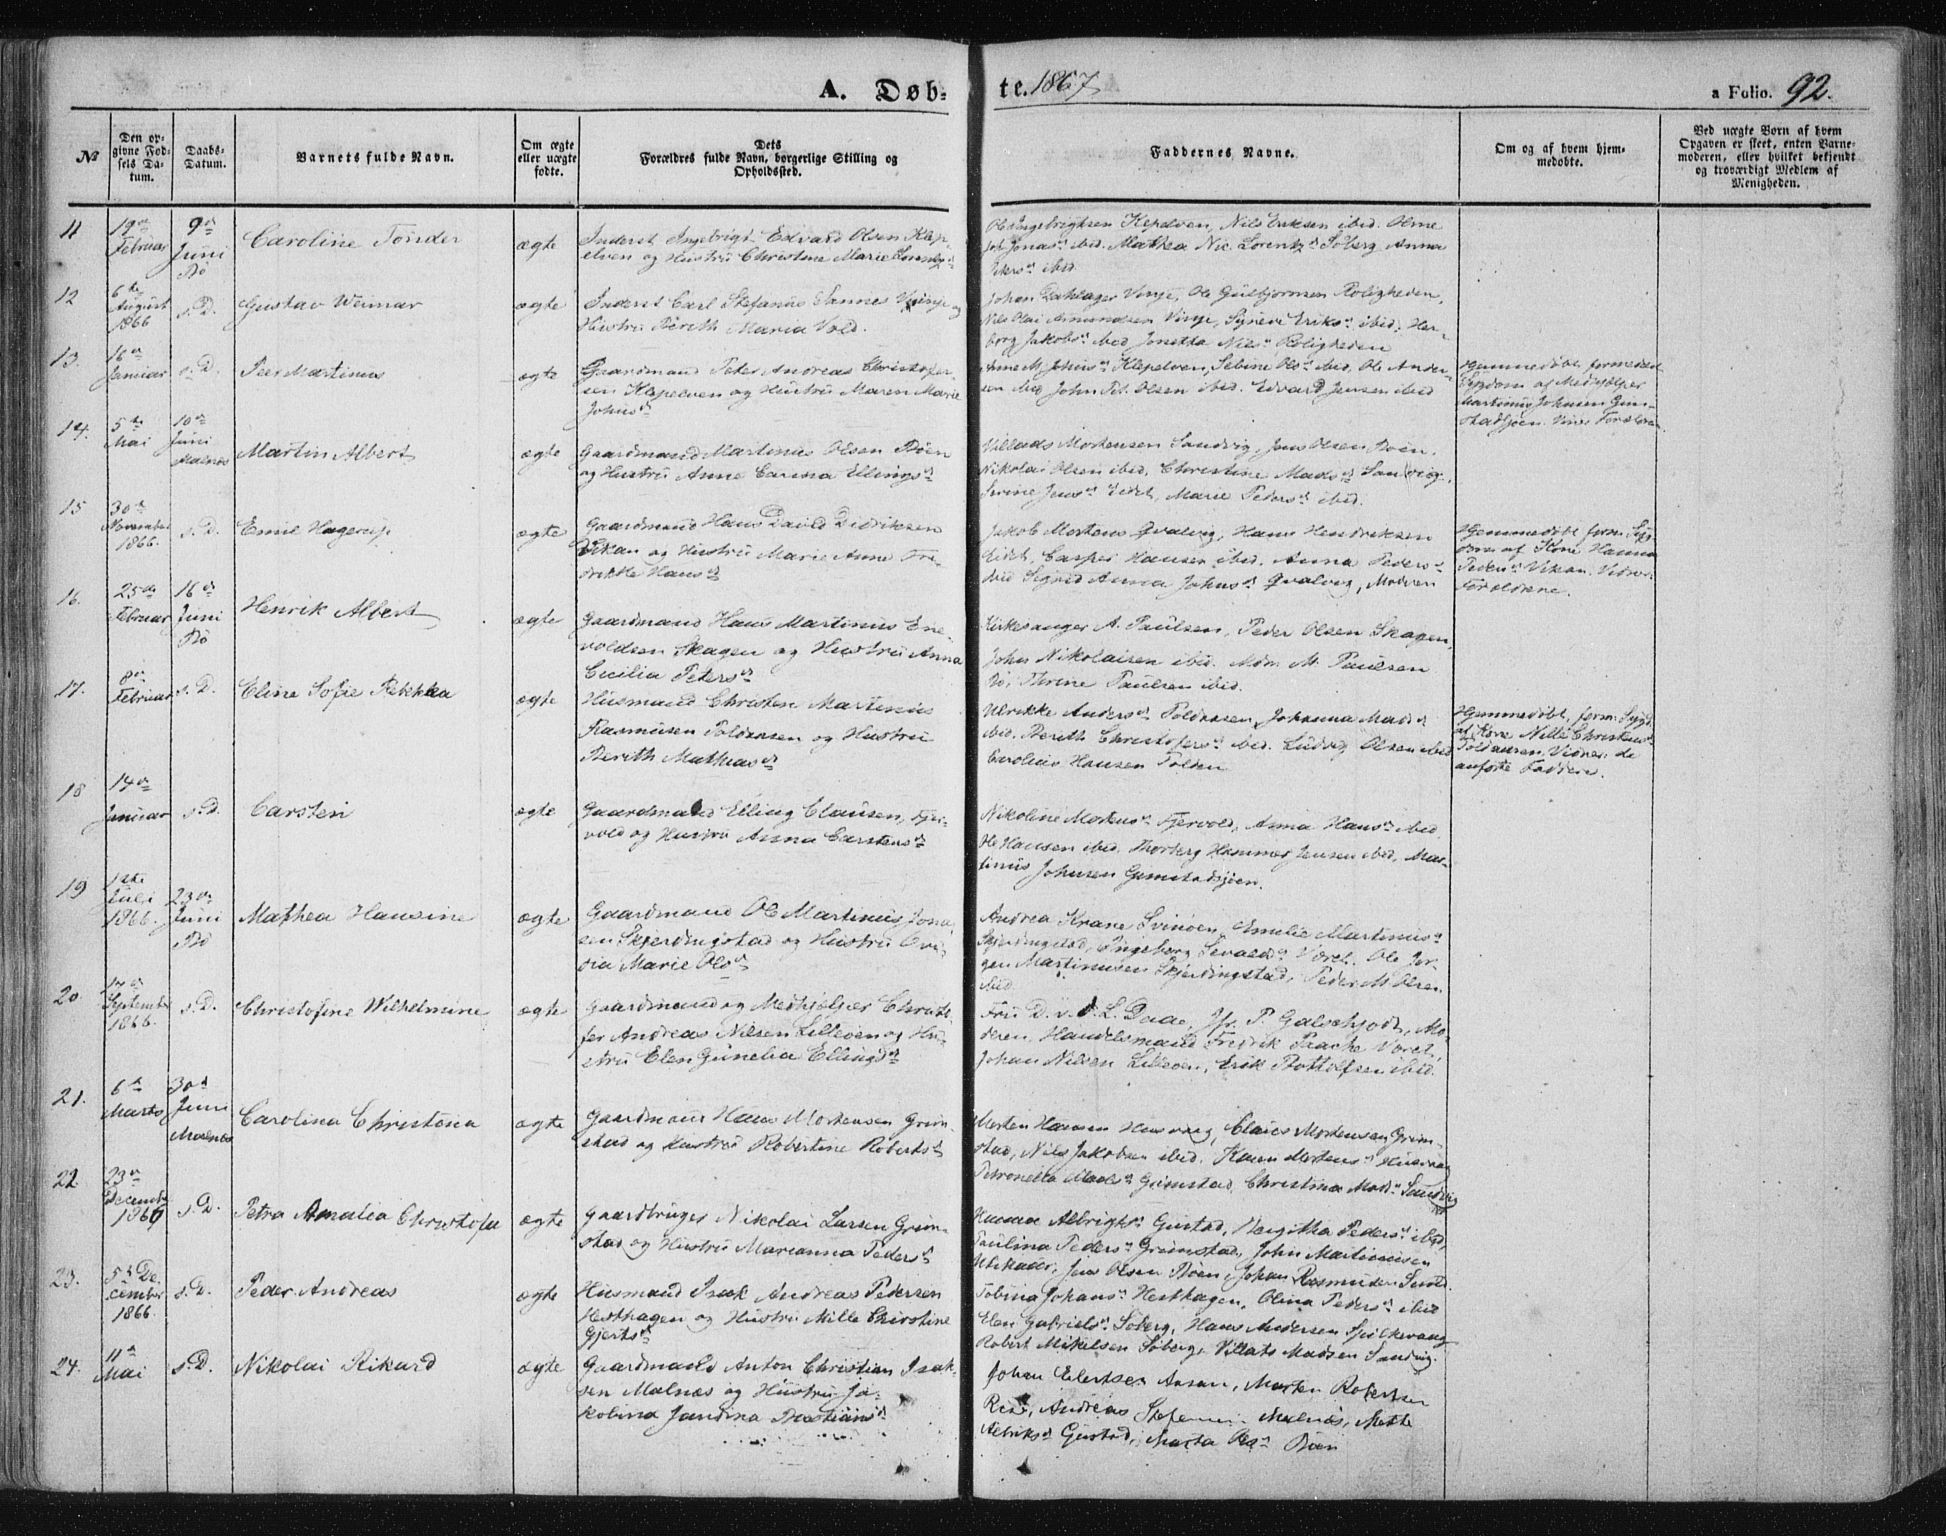 A. Døb-
te. 1867
a Folio. 92.
№
Den op-
givne Fød-
sels Da-
tum.
Daabs-
Datum.
Barnets fulde Navn.
Om ægte
eller uægte
fødte.
Dets
Forældres fulde Navn, borgerlige Stilling og
Opholdssted.
Faddernes Navne.
Om og af hvem hjem-
medøbte.
Ved uægte Børn af hvem
Opgaven er skeet, enten Barne-
moderen, eller hvilket bekjendt
og troværdigt Medlem af
Menigheden.
11
19de
Februar
9de
Juni
Bö
Caroline Tönder
ægte
Inderst Ingebrigt Edvard Olsen Klep-
elven og Hustru Christine Marie
Ole Ingebrigtsen Klepelven, Nils Eriksen ibid.
ibid. Mathea Nic. Lorentz Söberg Anna
ibid.
12
6te
August
1866
s.D.
Gustav Weimar
ægte
Inderst Carl Stefanus Sannes Vinje og
Hustru Berith Maria Vold.
Johan Dahlager Vinje, Ole Guldbjornsen Roligheden,
Nils Olai Amundsen Vinje, Synevi Eriksd. ibid. Her-
borg Jakobsd. ibid Jonetta Nilsd. Roligheden
13.
16de
Januar
s.D.
Peer Martinus
ægte
Gaardmand Peter Andreas Christofer-
sen Klepelven og Hustru Maren Marie
Johnsd.
Anne M. Johnsd. Klepelven, Sebine Olsd. ibid, Ole Ander-
sen ibid, John Pet. Olsen ibid. Edvard Jensen ibid
Hjemmedöbt formedelst
Sygdom af Medhjælper
Martinus Johnsen Gim-
stadsjöen.
14.
5te
Mai
10de
Juni
Malnæs
Martin Albert
ægte
Gaardmand Martinus Olsen Böen
og Hustru Anne Carina Ellingsd.
Villads Mortensen Sandvig, Jens Olsen Böen.
Nikolai Olsen ibid, Christine Madsd. Sandvig,
Serine Jensd. Eidet, Marie Pedersd. ibid.
15
30de
November
1866.
s.D.
Emil Hagerup
ægte
Gaardmand Hans David Didriksen
Vikan og Hustru Marie Anne Fre-
drikke Hansd.
Jakob Mortens Qvalvig, Hans Hendriksen
Eidet, Casper Hansen ibid. Anna Pedersd.
ibid Sigrid Anna Johnsd. Qvalvig, Modren
Hjemmedöbt form. Syg-
dom af Kone Hanna
Pedersd. Vikan. Vidner
Forældrene.
16.
25de
Februar
16de
Juni
Bö
Henrik Albert
ægte
Gaardmand Hans Martinus Ene-
voldsen Skagen og Hustru Anna
Cicilia Petersd.
Kirkesanger A. Paulsen, Peder Olsen Skagen,
John Nikolaisen ibid. Mdm. M. Paulsen
Bö, Thrine Paulsen ibid.
17.
8de
Februar
s.D.
Eline Sofie Rebekka
ægte
Husmand Christen Martinus
Rasmusen Toldaasen og Hustru
Berith Mathiasd.
Ulrikke Andersd. Toldaasen, Johanna Madsd.
ibid. Berith Christofersd. ibid. Ludvig Olsen ibid
Carolius Hansen Tolden
Hjemmedöbt, form. Sygd.
af Kone Nille Christensd.
Toldaasen. Vidner: de
anförte Faddere.
18
14de
Januar
s.D.
Carsten
ægte
Gaardmand Elling Clausen, Fjer-
vold og Hustru Anna Carstensd.
Nikoline Mortensd. Fjervold, Anna Hansd. ibid
Ole Hansen ibid, Thorberg Hammer Jensen ibid, Mar-
tinus Johnsen Gimstadsjöen.
19
1ste
Juli
1866.
23de
Juni
Bö
Mathea Hansine
ægte
Gaardmand Ole Martinus Jona-
sen Skjerdingstad og Hustru Ovi-
dia Marie Olsd.
Andrea Krane Svinöen, Emelie Martinusd.
Skjerdingstad, Ingeborg Sivaldsd. Voret. Ole Jör-
gen Martinusen Skjerdingstad, Peder M. Olsen
ibid
20.
17de
September
1866.
s.D.
Christofine Wilhelmine
ægte
Gaardmand og Medhjelper Christi-
fer Andreas Nilsen Lilleöen og Hu-
stru Elen Gunelia Ellingsd.
Fru D. v. d. L. Daae, Jfr. P. Galschjödt, Mo-
deren, Handelsmand Fredrik Voret,
Johan Nilsen Lilleöen, Erik Rottolfsen ibid.
21.
6te
Marts
30te
Juni
Malnæs
Carolina Christina
ægte
Gaardmand Hans Mortensen Grim-
stad og Hustru Robertine Robertsd.
Morten Hansen Husvaag, Claus Mortensen Grim-
stad, Nils Jakobsen ibid. Karen Mortensd. Husvaag
Petronella Madsd. Grimstad, Christina Madsd. Sandvig
22
23de
December
1866
s.D.
Petra Amalia Christofa
ægte
Gaardbruger Nikolai Larsen Grim-
stad og Hustru Marianna Pedersd.
Hanna Albrigtsd. Gustad, Bergitha Pedersd. ibid,
Paulina Pedersd. Grimstad, John Martinusen
Utskader, Jens Olsen Böen, Johan Rasmusen
23.
5te De-
cember
1866.
s.D.
Peder Andreas
ægte
Husmand Isak Andreas Pedersen
Hesthagen og Hustru Mille Christine
Gjertsd.
Tobina Johansd. Hesthagen, Olina Pedersd. ibid
Elen Gabrielsd. Söberg, Hans Andersen Spilkevaag
Robert Mikelsen Söberg, Villats Madsen Sandvig.
24.
11te
Mai
s.D.
Nikolai Rikard
ægte
Gaardmand Anton Christian Isak-
sen Malnæs og Hustru Ja-
kobina Jandina Bastiansd.
Johan Elertsen Aasan, Morten Robertsen
Rise, Andreas Malnæs, Mette
Albriksd. Gustad, Marta Olsd. Böen